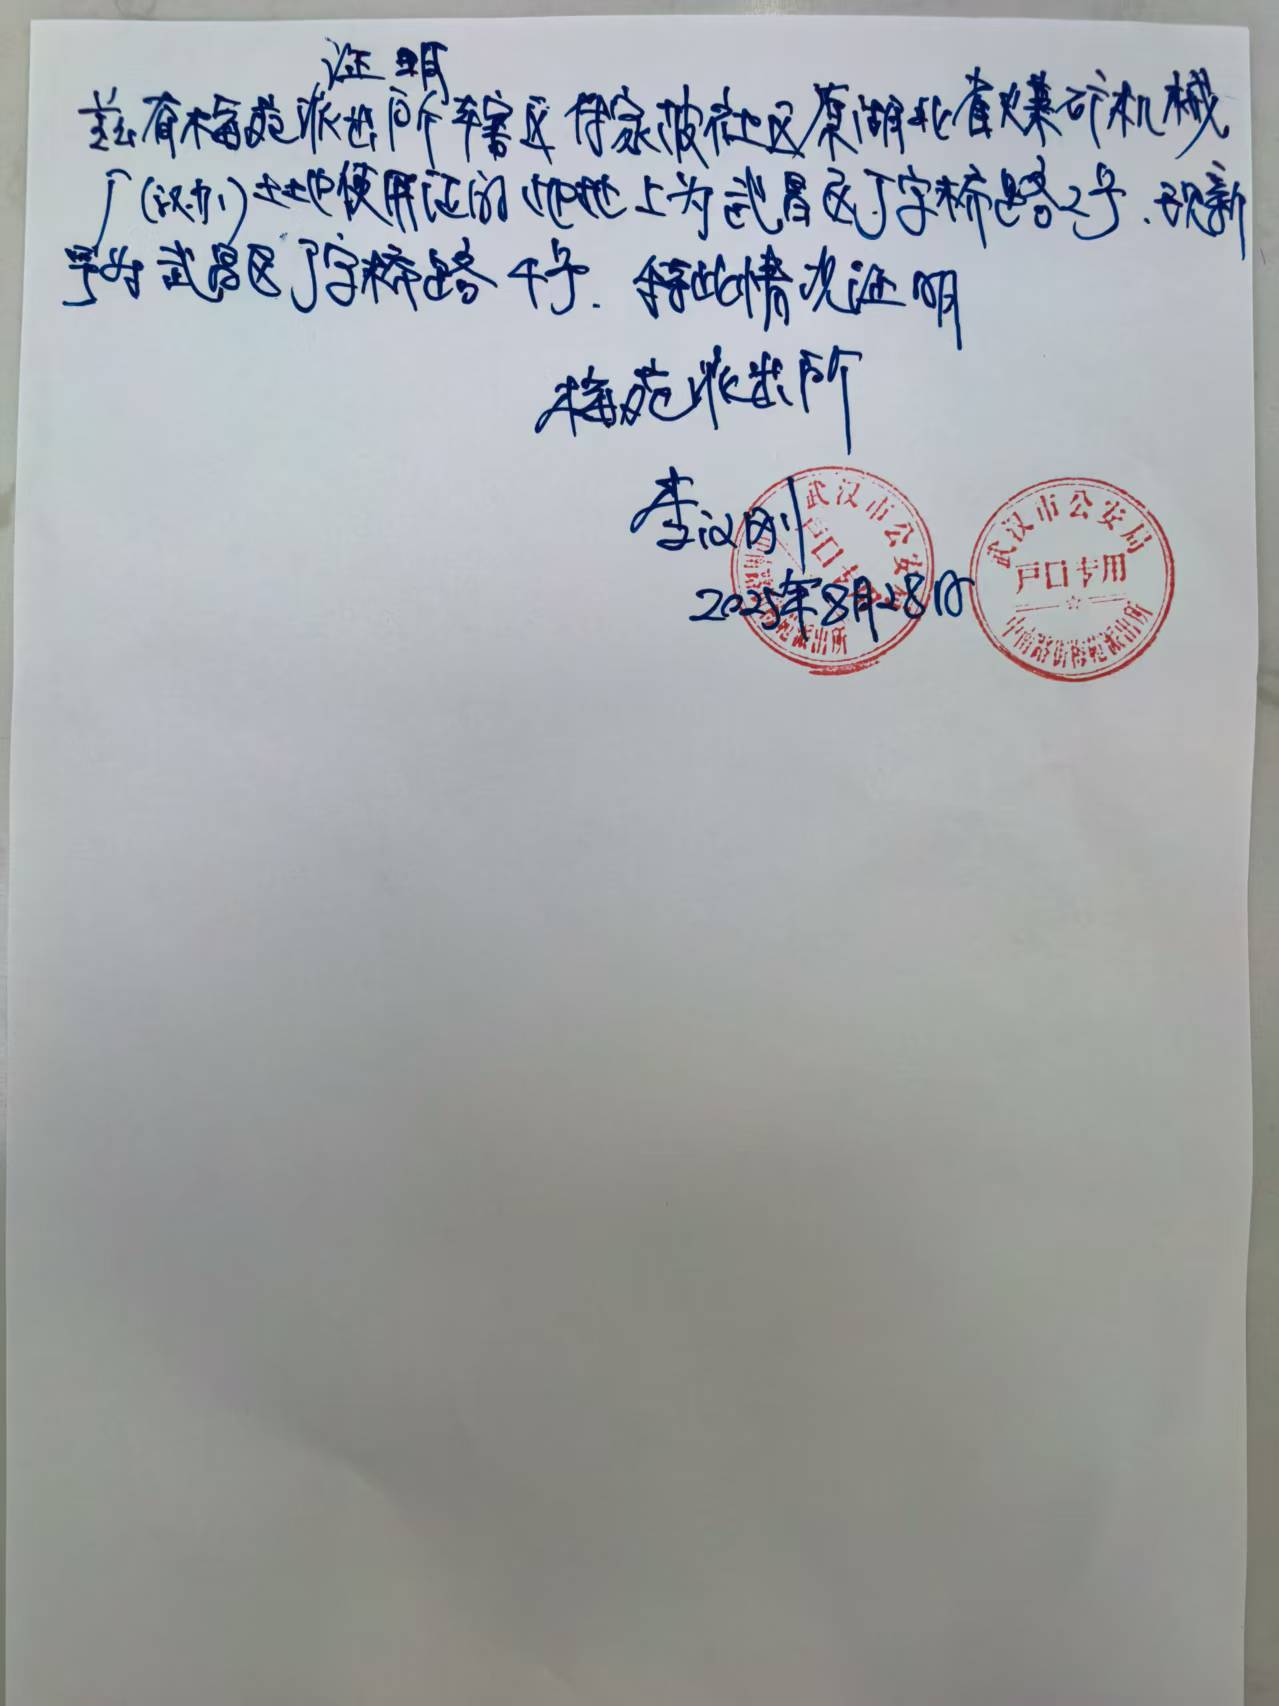 证明
兹有梅苑派出所辖区傅家坡社区原湖北省煤矿机械
厂(汉办)土地使用证的地址上为武昌区丁字桥路2号.现新
号为武昌区丁字桥路4号.特此情况证明
梅苑派出所
李汉刚
2025年8月28日
武汉市公安
户口专
派出所
武汉市公安局
户口专用
中南路街梅苑派出所